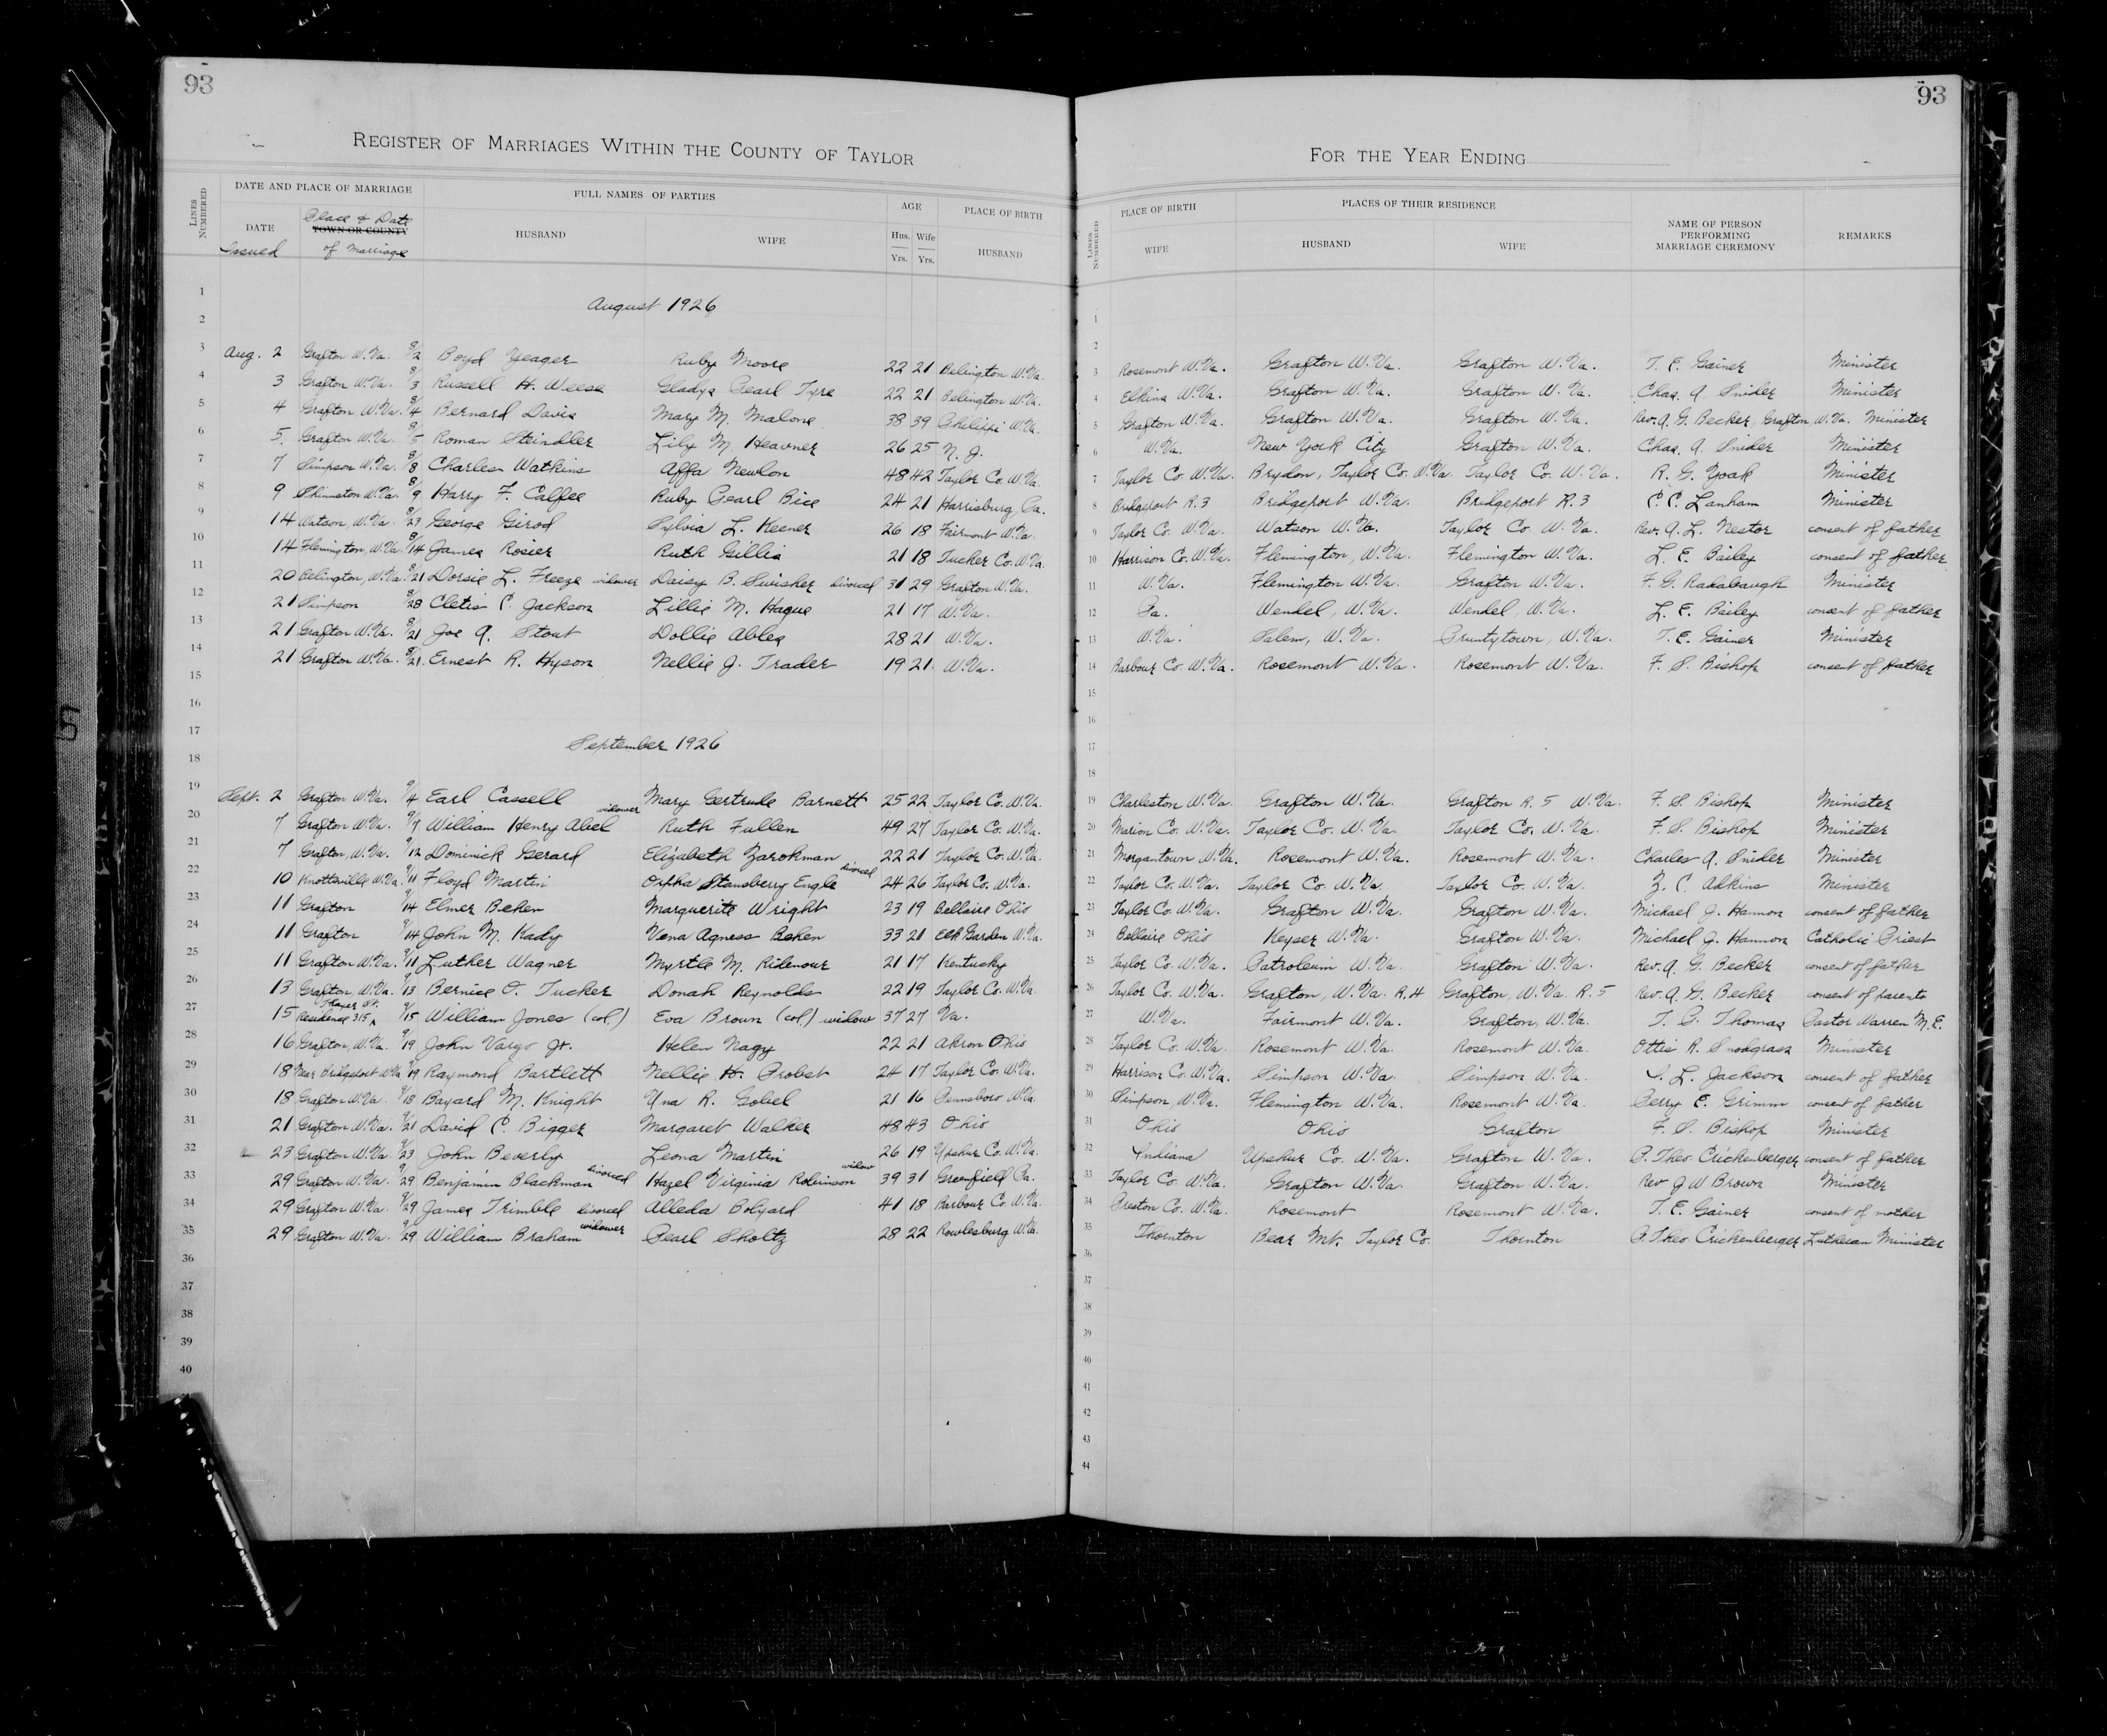 93
REGISTER OF MARRIAGES WITHIN THE COUNTY OF TAYLOR
LINES NUMBERED
DATE AND PLACE OF MARRIAGE FULL NAMES OF PARTIES AGE PLACE OF BIRTH
DATE Issued Place & Date TOWN OR COUNTY of Marriage HUSBAND WIFE Hus. Yrs. Wife Yrs. HUSBAND
1
August 1926
2
3 Aug. 2 Grafton W.Va. 8/2 Boyd Yeager Ruby Moore 22 21 Belington W.Va.
4 3 Grafton W.Va. 8/3 Russell H. Weese Gladys Pearl Tyre 22 21 Belington W.Va.
5 4 Grafton W.Va. 8/4 Bernard Davis Mary M. Malone 38 39 Philippi W.Va.
6 5. Grafton W.Va. 8/5 Roman Steindler Lily M. Heavner 26 25 N. J.
7 7 Simpson W.Va. 8/8 Charles Watkins Affa Newlon 48 42 Taylor Co. W.Va.
8 9 Shinnston W.Va. 8/9 Harry F. Calfee Ruby Pearl Bice 24 21 Harrisburg Pa.
9 14 Watson, W.Va. 8/23 George Girod Sylvia L. Keener 26 18 Fairmont W.Va.
10 14 Flemington, W.Va. 8/14 James Rosier Ruth Gillis 21 18 Tucker Co. W.Va.
11 20 Belington, W.Va. 8/21 Dorsie L. Freeze widower Daisy B. Swisher divorced 31 29 Grafton W.Va.
12 21 Simpson 8/28 Cletis C. Jackson Lillie M. Hague 21 17 W.Va.
13 21 Grafton W.Va. 8/21 Joe A. Stout Dollie Ables 28 21 W.Va.
14 21 Grafton W.Va. 8/21. Ernest R. Hyson Nellie J. Trader 19 21. W.Va.
15
16
17
September 1926
18
19 Sept. 2 Grafton W.Va. 9/4 Earl Cassell Mary Gertrude Barnett 25 22 Taylor Co. W.Va.
20 7 Grafton W.Va. 9/7 William Henry Abel widower Ruth Fullen 49 27 Taylor Co. W.Va.
21 7 Grafton, W.Va. 9/12 Dominick Gerard Elizabeth Zarokman 22 21 Taylor Co. W.Va.
22 10 Knottsville W.Va. 9/11 Floyd Martin Orpha Stansberry Engle divorced 24 26 Taylor Co. W.Va.
23 11 Grafton 9/14 Elmer Beken Marguerite Wright 23 19 Bellaire Ohio
24 11 Grafton 9/14 John M. Kady Vena Agness Beken 33 21 Elk Garden W.Va.
25 11 Grafton W.Va. 9/11 Luther Wagner Myrtle M. Ridenour 21 17 Kentucky
26 13 Grafton, W.Va. 9/13 Bernice O. Tucker Donah Reynolds 22 19 Taylor Co. W.Va.
27 15 Residence 315 Thayer St. 9/15 William Jones (col.) Eva Brown (col.) widow 37 27 Va.
28 16 Grafton, W.Va. 9/19 John Vargo Jr. Helen Nagy 22 21 Akron Ohio
29 18 Near Bridgeport W.Va. 9/19 Raymond Bartlett Nellie H. Probst 24 17 Taylor Co. W.Va.
30 18 Grafton W.Va. 9/18 Bayard M. Knight Una R. Gobel 21 16 Pennsboro W.Va.
31 21 Grafton W.Va. 9/21 David C. Bigger Margaret Walker 48 43 Ohio
32 23 Grafton W.Va. 9/23 John Beverly Leona Martin 26 19 Upshur Co. W.Va.
33 29 Grafton W.Va. 9/29 Benjamin Blackman divorced Hazel Virginia Robinson widow 39 31 Greenfield Pa.
34 29 Grafton W.Va. 9/29 James Trimble divorced Alleda Bolyard 41 18 Barbour Co. W.Va.
35 29 Grafton W.Va. 9/29 William Braham widower Pearl Sholtz 28 22 Rowlesburg W.Va.
36
37
38
39
40
93
FOR THE YEAR ENDING
LINES NUMBERED
PLACE OF BIRTH PLACES OF THEIR RESIDENCE NAME OF PERSON PERFORMING MARRIAGE CEREMONY REMARKS
WIFE HUSBAND WIFE
1
2
3 Rosemont W.Va. Grafton W.Va. Grafton W.Va. T. E. Gainer Minister
4 Elkins W.Va. Grafton W.Va. Grafton W.Va. Chas. A. Snider Minister
5 Grafton W.Va. Grafton W.Va. Grafton W.Va. Rev. A. G. Becker, Grafton, W.Va. Minister
6 W.Va. New York City Grafton W.Va. Chas. A. Snider Minister
7 Taylor Co. W.Va. Brydon, Taylor Co. W.Va. Taylor Co. W.Va. R. G. Yoak Minister
8 Bridgeport R.3 Bridgeport W.Va. Bridgeport R.3 C. C. Lanham Minister
9 Taylor Co. W.Va. Watson W.Va. Taylor Co W.Va. Rev. A. L. Nestor consent of father
10 Harrison Co. W.Va. Flemington, W.Va. Flemington W.Va. L. E. Bailey consent of father
11 W.Va. Flemington W.Va. Grafton W.Va. F. G. Radabaugh Minister
12 Pa. Wendel, W.Va. Wendel, W.Va. L. E. Bailey consent of father
13 W.Va. Salem, W.Va. Pruntytown, W.Va. T. E. Gainer Minister
14 Barbour Co. W.Va. Rosemont W.Va. Rosemont W.Va. F. S. Bishop consent of father
15
16
17
18
19 Charleston W.Va. Grafton W.Va. Grafton R. 5 W.Va. F. S. Bishop Minister
20 Marion Co. W.Va. Taylor Co. W.Va. Taylor Co. W.Va. F. S. Bishop Minister
21 Morgantown W.Va. Rosemont W.Va. Rosemont W.Va. Charles A. Snider Minister
22 Taylor Co. W.Va. Taylor Co. W.Va. Taylor Co. W.Va. Z. C. Adkins Minister
23 Taylor Co. W.Va. Grafton W.Va. Grafton W.Va. Michael J. Hannon consent of father
24 Bellaire Ohio Keyser W.Va. Grafton W.Va. Michael J. Hannon Catholic Priest
25 Taylor Co. W.Va. Patroleum W.Va. Grafton W.Va. Rev. A. G. Becker consent of father
26 Taylor Co. W.Va. Grafton, W.Va. R.4 Grafton, W.Va. R.5 Rev. A. G. Becker consent of parents
27 W.Va. Fairmont W.Va. Grafton, W.Va. T. G. Thomas Pastor Warren M.E.
28 Taylor Co. W.Va. Rosemont W.Va. Rosemont W.Va. Ottis R. Snodgrass Minister
29 Harrison Co. W.Va. Simpson W.Va. Simpson W.Va. L. Jackson consent of father
30 Simpson, W.Va. Flemington W.Va. Rosemont W.Va. Perry E. Grimm consent of father
31 Ohio Ohio Grafton F. S. Bishop Minister
32 Indiana Upshur Co. W.Va. Grafton W.Va. P. Theo. Crickenberger consent of father
33 Taylor Co. W.Va. Grafton W.Va. Grafton W.Va. Rev J W Brown Minister
34 Preston Co. W.Va. Rosemont Rosemont W.Va. T. E. Gainer consent of mother
35 Thornton Bear Mt. Taylor Co. Thornton P. Theo. Crickenberger Lutheran Minister
36
37
38
39
40
41
42
43
44